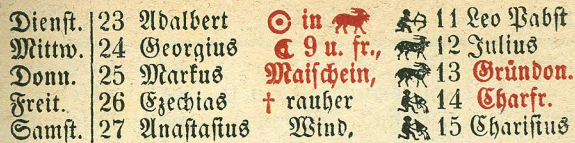 Dienſt. 23 Adalbert ☉ in 11 Leo Pabſt
Mittw. 24 Georgius ☾ 9 u. fr., 12 Julius
Donn. 25 Markus Maiſchein, 13 Gründon.
Freit. 26 Ezechias † rauher 14 Charfr.
Samſt. 27 Anaſtaſius Wind, 15 Chariſius